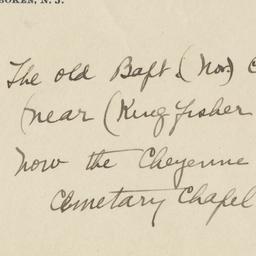 BOKEN, N. J.
The old Bapt. (Nor.) C
(near (King fisher
now the Cheyenne
Cemetary Chapel